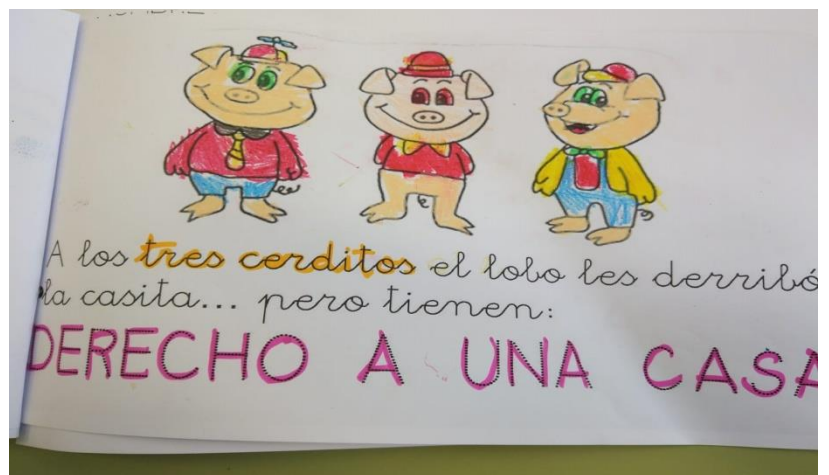 A los tres cerditos el lobo les derribó
la casita... pero tienen:
DERECHO A UNA CASA